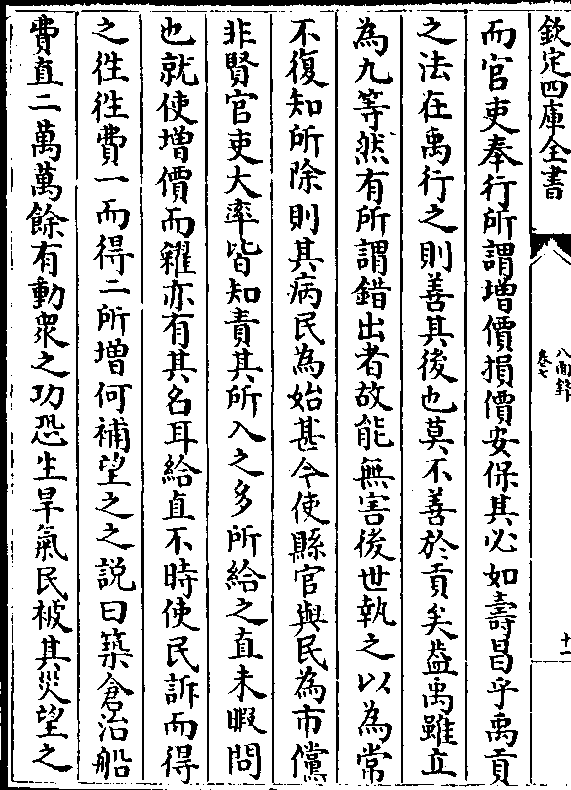 欽定四庫全書
八面鋒
卷七
十二
而官吏奉行所謂増價損價安保其必如壽昌乎禹貢
之法在禹行之則善其後也莫不善於貢矣蓋禹雖立
為九等然有所謂錯出者故能無害後世執之以為常
不復知所除則其病民為始甚今使縣官與民為市儻
非賢官吏大率皆知責其所入之多所給之直未暇問
也就使増價而糴亦有其名耳給直不時使民訴而得
之徃徃費一而得二所増何補望之之説曰築倉治船
費直二萬萬餘有動衆之功恐生旱氣民被其災望之